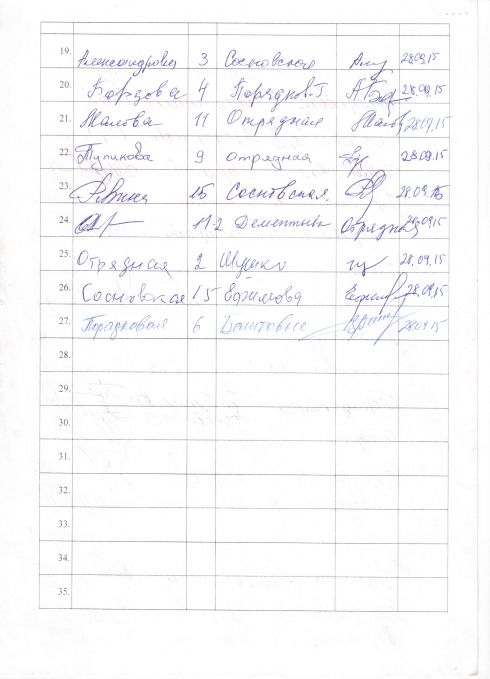 19. Александрова 3 Сосновская 28.09.15
20. Борзова 4 28.09.15
21. Малова 11 Отрядная 28.09.15
22. Тупикова 9 отрядная 28.09.15
23. 15 Сосновская. 28.09.15
24. 11-2 Дементьева Отрядная 28.09.15
25. Отрядная 2 28.09.15
26. Сосновская 15 Ефимова 28.09.15
27. Порядковая 6 28.09.15
28.
29.
30.
31.
32.
33.
34.
35.